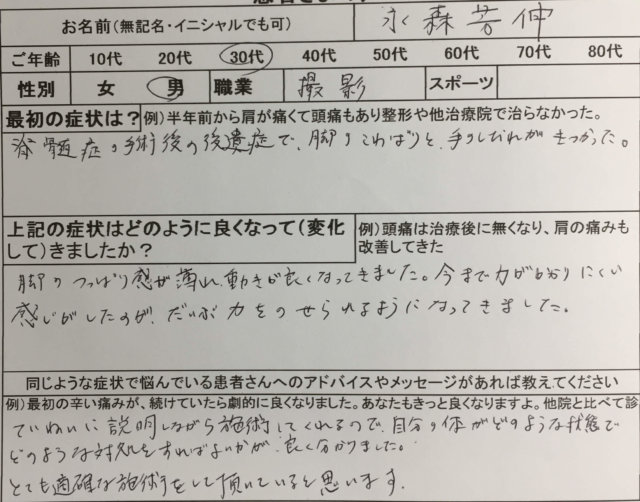 お名前(無記名・イニシャルでも可) 永森芳伸
ご年齢 10代 20代 30代 40代 50代 60代 70代 80代
性別 女 男 職業 撮影 スポーツ
最初の症状は? 例)半年前から肩が痛くて頭痛もあり整形や他治療院で治らなかった。
脊髄症の手術後の後遺症で、脚のこわばりと、手のしびれがきつかった。
上記の症状はどのように良くなって(変化して)きましたか? 例)頭痛は治療後に無くなり、肩の痛みも改善してきた
脚のつっぱり感が薄れ、動きが良くなってきました。今まで力がかかりにくい
感じがしたのが、だいぶ力をのせられるようになってきました。
同じような症状で悩んでいる患者さんへのアドバイスやメッセージがあれば教えてください
例)最初の辛い痛みが、続けていたら劇的に良くなりました。あなたもきっと良くなりますよ。他院と比べて診
ていねいに説明しながら施術してくれるので、自分の体がどのような状態で
どのような対処をすればよいかが、良く分かりました。
とても適確な施術をして頂いていると思います。